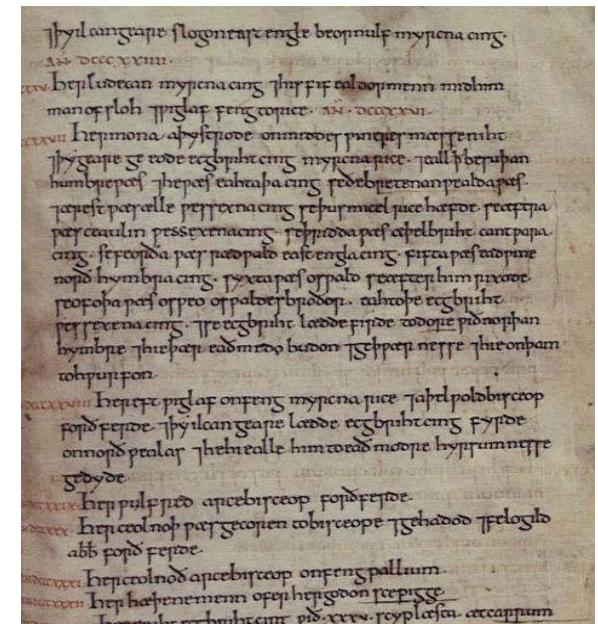 ⁊þy ilcan geare slogon east engle beornulf myrcna cing.
AN̄. DCCCXXIIII.
Her ludecan myrcna cing ⁊his fif ealdormenn mid him
man ofsloh ⁊ƿiglaf feng to rice. AN̄. DCCCXXVI.
Her mona aþystrode on middes ƿintres mæsseniht
⁊þy geare ge eode ecgbriht cing myrcna rice. ⁊eall ꝥ be suþan
humbre ƿæs ⁊he ƿæs eahtaþa cing se ðe bretenanƿealda ƿæs.
⁊ærest ƿæs ælle ƿessexna cing se þus micel rice hæfde. se æftra
ƿæs ceaulin ƿessexena cing. se þridda ƿæs æþelbriht cantƿara
cing. se feorða ƿæs rædƿald eastengla cing. fifta ƿæs eadƿine
norð hymbria cing. syxta ƿæs osƿald se æfter him rixode.
seofoþa ƿæs osƿeo osƿaldes broðor. eahtoþe ecgbriht
ƿessexena cing. ⁊se ecgbriht lædde firde to dore ƿið norþan
hymbre ⁊hie þær eadmedo budon ⁊geþƿærnesse ⁊hie on þam
tohƿurfon.
DCCCXXVIII Her eft ƿiglaf onfeng myrcna rice ⁊aþelƿold bisceop
forð ferde. ⁊þy ilcan geare lædde ecgbriht cing fyrde
on norð ƿealas ⁊he hi ealle him to ead modre hyrsumnesse
gedyde.
Her ƿulfred arcebisceop forð ferde.
Her ceolnoþ ƿæs gecoren to bisceope ⁊gehadod ⁊felogild
abb̄ forð ferde.
Her ceolnoð arcebisceop onfeng pallium.
Her hæþene menn ofer hergodon scepigge.
ecgbriht cing ƿið .xxxv. scyplæsta. æt carrum